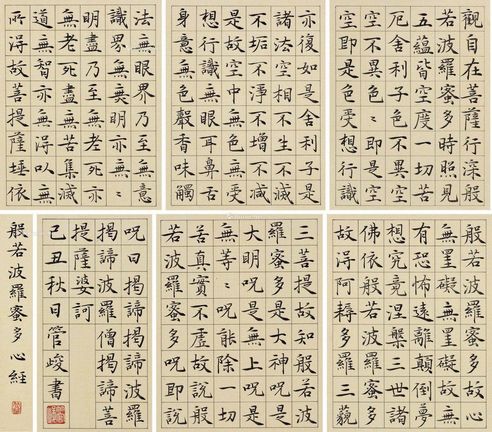 觀自在菩薩行深般
若波羅蜜多時照見
五蘊皆空度一切苦
厄舍利子色不異空
空不異色〻即是空
空即是色受想行識
亦復如是舍利子是
諸法空相不生不滅
不垢不淨不增不減
是故空中無色無受
想行識無眼耳鼻舌
身意無色聲香味觸
法無眼界乃至無意
識界無無明亦無〻
明盡乃至無老死亦
無老死盡無苦集滅
道無智亦無得以無
所得故菩提薩埵依
般若波羅蜜多故心
無罣礙無罣礙故無
有恐怖遠離顛倒夢
想究竟涅槃三世諸
佛依般若波羅蜜多
故得阿耨多羅三藐
三菩提故知般若波
羅蜜多是大神呪是
大明呪是無上呪是
無等〻呪能除一切
苦真實不虛故說般
若波羅蜜多呪即說
呪曰揭諦揭諦波羅
揭諦波羅僧揭諦菩
提薩婆訶
己丑秋日管峻書
般若波羅蜜多心經